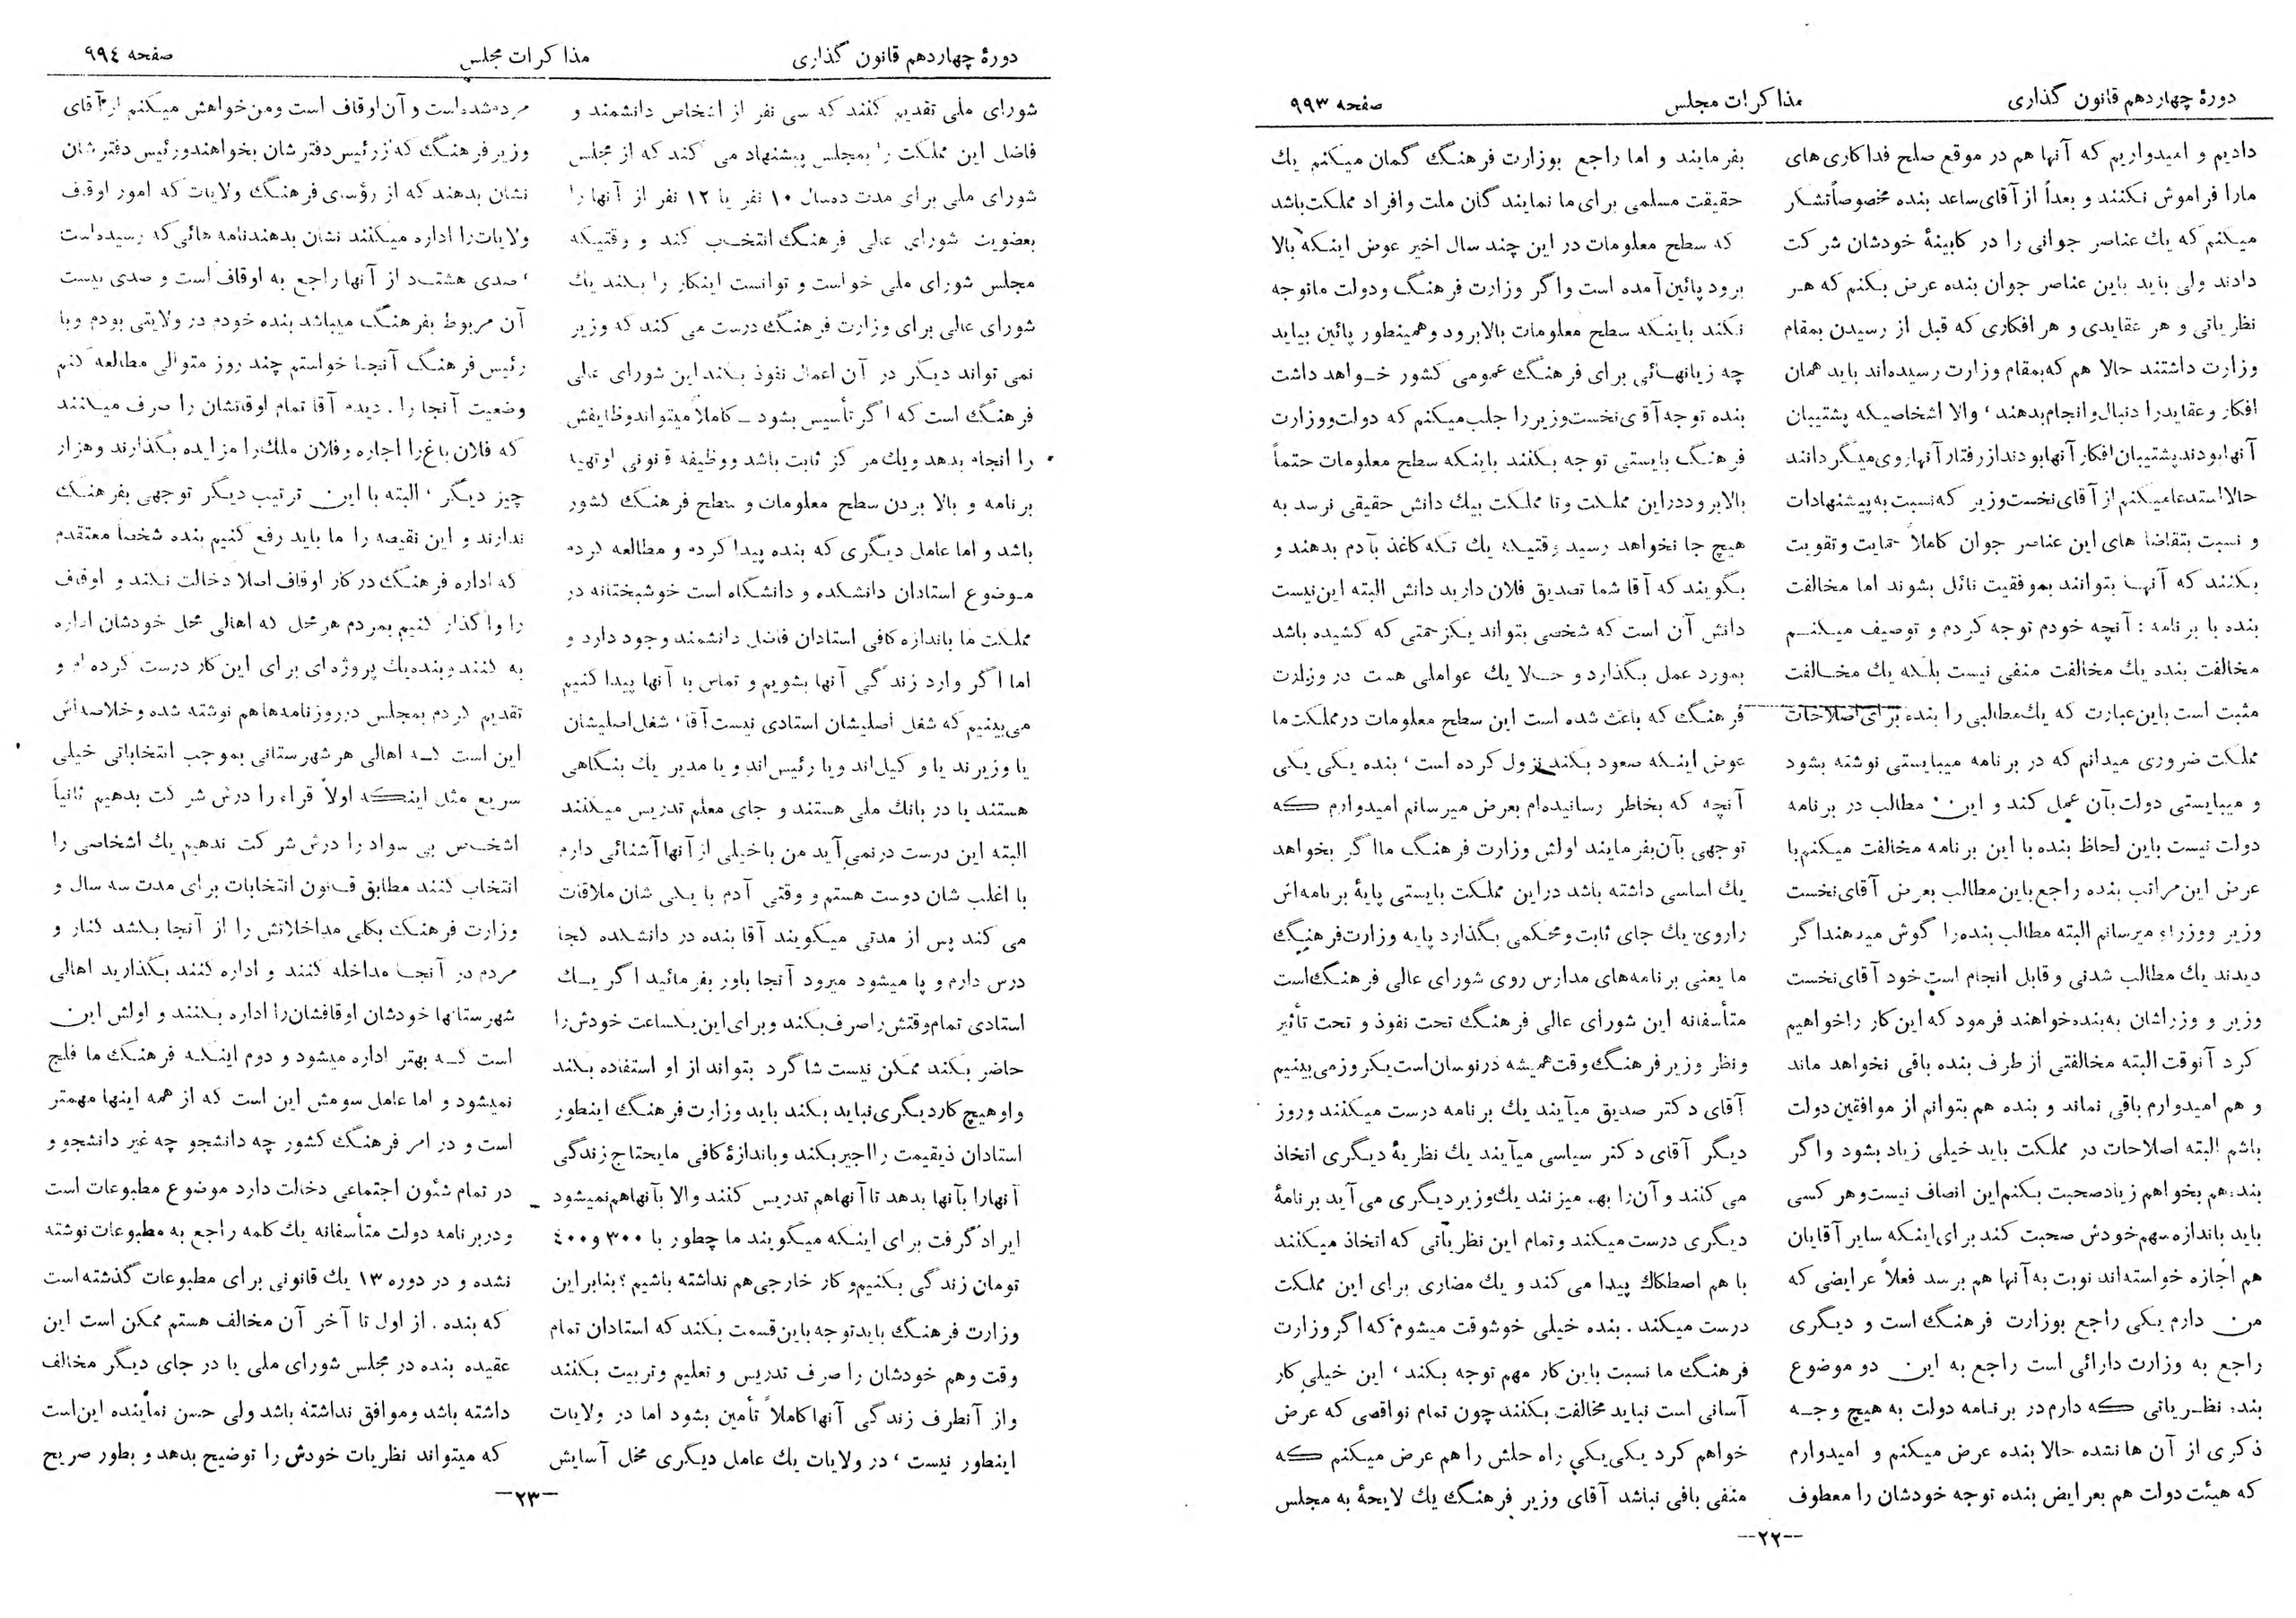 دورهٔ چهاردهم قانون گذاری
مذاکرات مجلس
صفحه ۹۹۳
دادیم و امیدواریم که آنها هم در موقع صلح فداکاری‌های
مارا فراموش نکنند و بعداً از آقای ساعد بنده مخصوصاً تشکر
میکنم که یك عناصر جوانی را در کابینهٔ خودشان شرکت
دادند ولی باید باین عناصر جوان بنده عرض بکنم که هر
نظریاتی و هر عقایدی و هر افکاری که قبل از رسیدن بمقام
وزارت داشتند حالا هم که بمقام وزارت رسیده‌اند باید همان
افکار و عقاید را دنبال و انجام بدهند ، والا اشخاصیکه پشتیبان
آنها بودند پشتیبان افکار آنها بودند از رفتار آنها روی میگردانند
حالا استدعا میکنم از آقای نخست وزیر که نسبت به پیشنهادات
و نسبت بتقاضا های این عناصر جوان کاملاً حمایت و تقویت
بکنند که آنها بتوانند بموفقیت نائل بشوند اما مخالفت
بنده با برنامه : آنچه خودم توجه کردم و توصیف میکنم
مخالفت بنده یك مخالفت منفی نیست بلکه یك مخالفت
مثبت است باین عبارت که یك مطالبی را بنده برای اصلاحات
مملکت ضروری میدانم که در برنامه میبایستی نوشته بشود
و میبایستی دولت بآن عمل کند و این مطالب در برنامه
دولت نیست باین لحاظ بنده با این برنامه مخالفت میکنم با
عرض این مراتب بنده راجع باین مطالب بعرض آقای نخست
وزیر و وزراء میرسانم البته مطالب بنده را گوش میدهند اگر
دیدند یك مطالب شدنی و قابل انجام است خود آقای نخست
وزیر و وزراشان به بنده خواهند فرمود که این کار را خواهیم
کرد آنوقت البته مخالفتی از طرف بنده باقی نخواهد ماند
و هم امیدوارم باقی نماند و بنده هم بتوانم از موافقین دولت
باشم البته اصلاحات در مملکت باید خیلی زیاد بشود و اگر
بنده هم بخواهم زیاد صحبت بکنم این انصاف نیست و هر کسی
باید باندازه سهم خودش صحبت کند برای اینکه سایر آقایان
هم اجازه خواسته‌اند نوبت به آنها هم برسد فعلاً عرایضی که
من دارم یکی راجع بوزارت فرهنگ است و دیگری
راجع به وزارت دارائی است راجع به این دو موضوع
بنده نظریاتی که دارم در برنامه دولت به هیچ وجه
ذکری از آن ها نشده حالا بنده عرض میکنم و امیدوارم
که هیئت دولت هم بعرایض بنده توجه خودشان را معطوف
بفرمایند و اما راجع بوزارت فرهنگ گمان میکنم یك
حقیقت مسلمی برای ما نمایندگان ملت و افراد مملکت باشد
که سطح معلومات در این چند سال اخیر عوض اینکه بالا
برود پائین آمده است و اگر وزارت فرهنگ و دولت ما توجه
نکند باینکه سطح معلومات بالا برود و همینطور پائین بیاید
چه زیانهائی برای فرهنگ عمومی کشور خواهد داشت
بنده توجه آقای نخست وزیر را جلب میکنم که دولت و وزارت
فرهنگ بایستی توجه بکنند باینکه سطح معلومات حتماً
بالا برود در این مملکت و تا مملکت بیك دانش حقیقی نرسد به
هیچ جا نخواهد رسید وقتیکه یك تکه کاغذ بآدم بدهند و
بگویند که آقا شما تصدیق فلان دارید دانش البته این نیست
دانش آن است که شخصی بتواند یکزحمتی که کشیده باشد
بمورد عمل بگذارد و حالا یك عواملی هست در وزارت
فرهنگ که باعث شده است این سطح معلومات در مملکت ما
عوض اینکه صعود بکند نزول کرده است ، بنده یکی یکی
آنچه که بخاطر رسانیده‌ام بعرض میرسانم امیدوارم که
توجهی بآن بفرمایند اولش وزارت فرهنگ ما اگر بخواهد
یك اساسی داشته باشد در این مملکت بایستی پایهٔ برنامه‌اش
را روی یك جای ثابت و محکمی بگذارد پایه وزارت فرهنگ
ما یعنی برنامه‌های مدارس روی شورای عالی فرهنگ است
متأسفانه این شورای عالی فرهنگ تحت نفوذ و تحت تأثیر
و نظر وزیر فرهنگ وقت همیشه در نوسان است یکروز می بینیم
آقای دکتر صدیق میآیند یك برنامه درست میکنند وروز
دیگر آقای دکتر سیاسی میآیند یك نظریهٔ دیگری اتخاذ
می کنند و آن را بهم میزنند یك وزیر دیگری می آید برنامهٔ
دیگری درست میکند و تمام این نظریاتی که اتخاذ میکنند
با هم اصطکاك پیدا می کند و یك مضاری برای این مملکت
درست میکند . بنده خیلی خوشوقت میشوم که اگر وزارت
فرهنگ ما نسبت باین کار مهم توجه بکند ، این خیلی کار
آسانی است نباید مخالفت بکنند چون تمام نواقصی که عرض
خواهم کرد یکی یکی راه حلش را هم عرض میکنم که
منفی بافی نباشد آقای وزیر فرهنگ یك لایحهٔ به مجلس
--۲۲--
دورهٔ چهاردهم قانون گذاری
مذاکرات مجلس
صفحه ۹۹٤
شورای ملی تقدیم کنند که سی نفر از اشخاص دانشمند و
فاضل این مملکت را بمجلس پیشنهاد می کند که از مجلس
شورای ملی برای مدت ده‌سال ۱۰ نفر یا ۱۲ نفر از آنها را
بعضویت شورای عالی فرهنگ انتخاب کند و وقتیکه
مجلس شورای ملی خواست و توانست اینکار را بکند یك
شورای عالی برای وزارت فرهنگ درست می کند که وزیر
نمی تواند دیگر در آن اعمال نفوذ بکند این شورای عالی
فرهنگ است که اگر تأسیس بشود - کاملاً میتواند وظایفش
را انجام بدهد و یك مرکز ثابت باشد و وظیفه قانونی او تهیه
برنامه و بالا بردن سطح معلومات و سطح فرهنگ کشور
باشد و اما عامل دیگری که بنده پیدا کردم و مطالعه کردم
موضوع استادان دانشکده و دانشگاه است خوشبختانه در
مملکت ما باندازه کافی استادان فاضل دانشمند وجود دارد و
اما اگر وارد زندگی آنها بشویم و تماس با آنها پیدا کنیم
می‌بینیم که شغل اصلیشان استادی نیست آقا ، شغل اصلیشان
یا وزیرند یا وکیل‌اند ویا رئیس‌اند و یا مدیر یك بنگاهی
هستند یا در بانك ملی هستند و جای معلم تدریس میکنند
البته این درست در نمی آید من با خیلی از آنها آشنائی دارم
با اغلب شان دوست هستم و وقتی آدم با یکی شان ملاقات
می کند پس از مدتی میگویند آقا بنده در دانشکده کجا
درس دارم و پا میشود میرود آنجا باور بفرمائید اگر یك
استادی تمام وقتش را صرف بکند و برای این یکساعت خودش را
حاضر بکند ممکن نیست شاگرد بتواند از او استفاده بکند
و او هیچ کار دیگری نباید بکند باید وزارت فرهنگ اینطور
استادان ذیقیمت را اجیر بکند و باندازهٔ کافی مایحتاج زندگی
آنها را بآنها بدهد تا آنها هم تدریس کنند والا بآنها هم نمیشود
ایراد گرفت برای اینکه میگویند ما چطور با ۳۰۰ و ٤۰۰
تومان زندگی بکنیم و کار خارجی هم نداشته باشیم ؟ بنابراین
وزارت فرهنگ باید توجه باین قسمت بکند که استادان تمام
وقت وهم خودشان را صرف تدریس و تعلیم و تربیت بکنند
واز آنطرف زندگی آنها کاملاً تأمین بشود اما در ولایات
اینطور نیست ، در ولایات یك عامل دیگری مخل آسایش
مردم شده است و آن اوقاف است ومن خواهش میکنم از آقای
وزیر فرهنگ که از رئیس دفترشان بخواهند و رئیس دفترشان
نشان بدهند که از رؤسای فرهنگ ولایات که امور اوقاف
ولایات را اداره میکنند نشان بدهند نامه هائی که رسیده است
، صدی هشتاد از آنها راجع به اوقاف است و صدی بیست
آن مربوط بفرهنگ میباشد بنده خودم در ولایتی بودم وبا
رئیس فرهنگ آنجا خواستم چند روز متوالی مطالعه کنم
وضعیت آنجا را . دیدم آقا تمام اوقاتشان را صرف میکنند
که فلان باغ را اجاره و فلان ملك را مزایده بگذارند و هزار
چیز دیگر ، البته با این ترتیب دیگر توجهی بفرهنگ
ندارند و این نقیصه را ما باید رفع کنیم بنده شخصاً معتقدم
که اداره فرهنگ در کار اوقاف اصلا دخالت نکند و اوقاف
را واگذار کنیم بمردم هر محل که اهالی محل خودشان اداره
به کنند و بنده یك پروژه ای برای این کار درست کرده ام و
تقدیم کردم بمجلس در روزنامه‌ها هم نوشته شده و خلاصه‌اش
این است که اهالی هر شهرستانی بموجب انتخاباتی خیلی
سریع مثل اینکه اولاً قراء را درش شرکت بدهیم ثانیاً
اشخاص بی سواد را درش شرکت ندهیم یك اشخاصی را
انتخاب کنند مطابق قانون انتخابات برای مدت سه سال و
وزارت فرهنگ بکلی مداخلاتش را از آنجا بکشد کنار و
مردم در آنجا مداخله کنند و اداره کنند بگذارید اهالی
شهرستانها خودشان اوقافشان را اداره بکنند و اولش این
است که بهتر اداره میشود و دوم اینکه فرهنگ ما فلج
نمیشود و اما عامل سومش این است که از همه اینها مهمتر
است و در امر فرهنگ کشور چه دانشجو چه غیر دانشجو و
در تمام شئون اجتماعی دخالت دارد موضوع مطبوعات است
و در برنامه دولت متأسفانه یك کلمه راجع به مطبوعات نوشته
نشده و در دوره ۱۳ یك قانونی برای مطبوعات گذشته است
که بنده . از اول تا آخر آن مخالف هستم ممکن است این
عقیده بنده در مجلس شورای ملی یا در جای دیگر مخالف
داشته باشد وموافق نداشته باشد ولی حسن نماینده این است
که میتواند نظریات خودش را توضیح بدهد و بطور صریح
-۲۳-